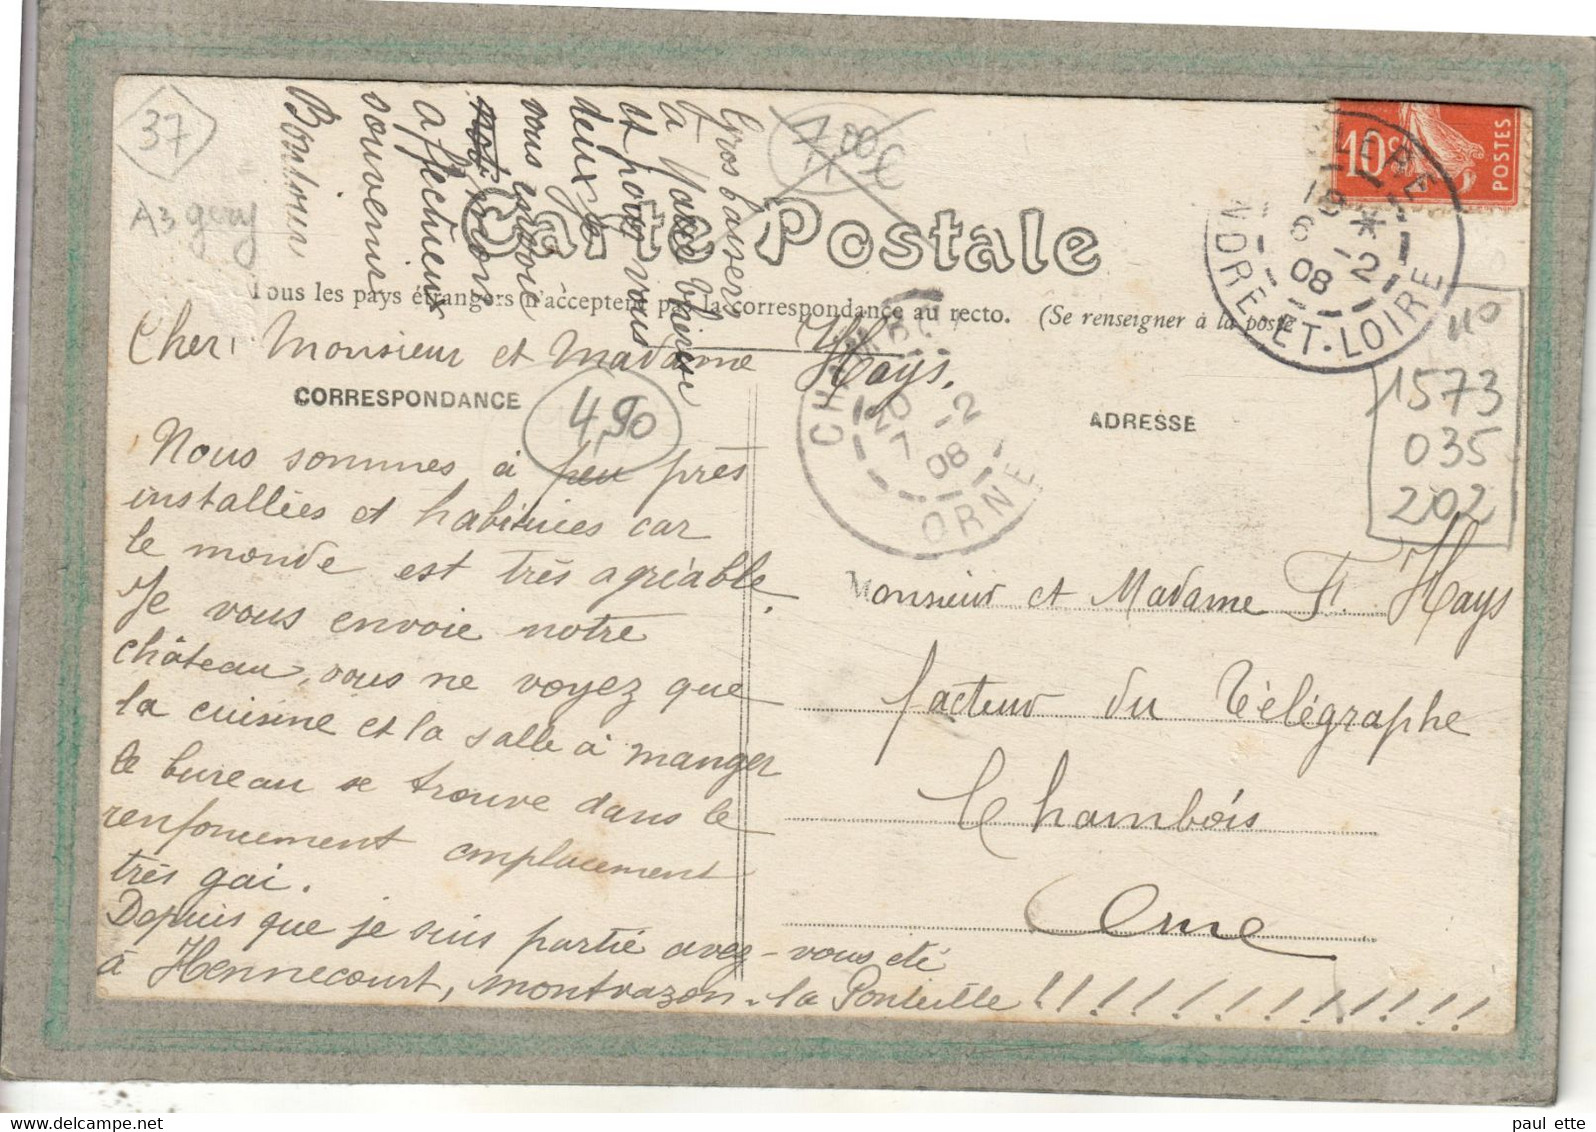 37
A3 gery
7.00€
Carte Postale
Tous les pays étrangers n'acceptent pas la correspondance au recto. (Se renseigner à la poste
CORRESPONDANCE
ADRESSE
4,90
10c
POSTES
18 *
6 -2
08
INDRE-ET-LOIRE
20 -2
7 08
ORNE
110
1573
035
202
Cher Monsieur et Madame Hays.
Nous sommes à peu près
installées et habituées car
le monde est très agréable.
Je vous envoie notre
château, vous ne voyez que
la cuisine et la salle à manger
le bureau se trouve dans le
renfoncement emplacement
très gai.
Depuis que je suis partie avez-vous été
à Hennecourt, Montrazon, la Ponteille !!!!!!!!!!!!!!
Gros baisers
à
et pour vous
deux je
vous envoie
mon
affectueux
souvenir
Monsieur et Madame F. Hays
facteur du Télégraphe
Chambois
Orne
paul ette